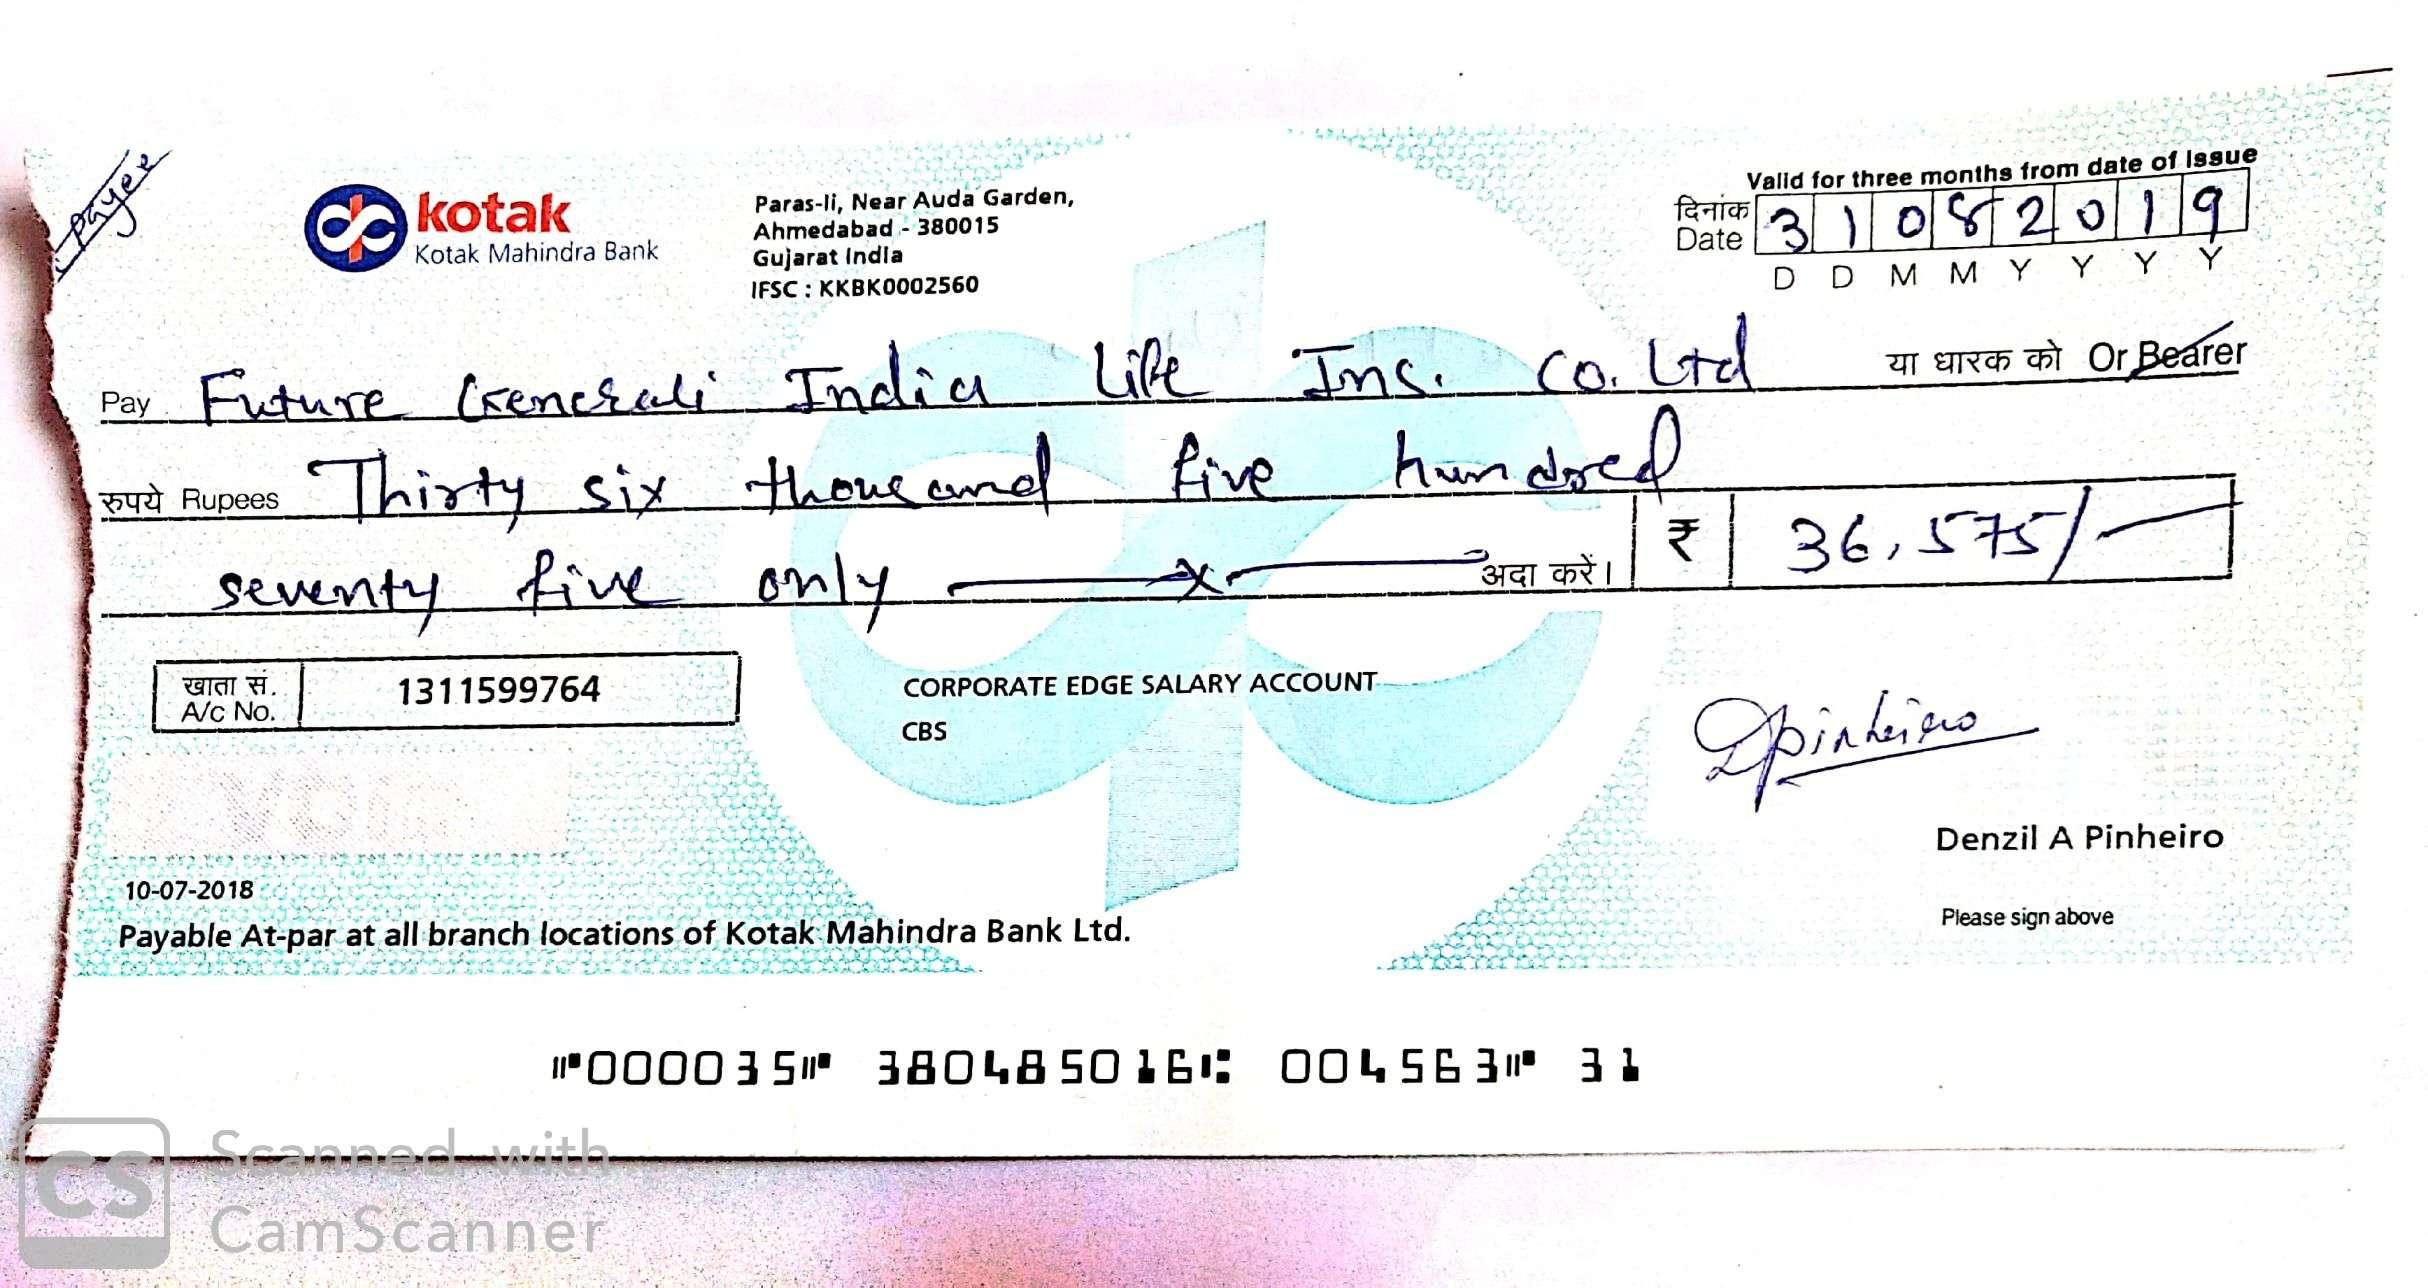 Payee
kotak
Kotak Mahindra Bank
Paras-Ii, Near Auda Garden,
Ahmedabad - 380015
Gujarat India
IFSC : KKBK0002560
Valid for three months from date of Issue
दिनांक
Date 31082019
D D M M Y Y Y Y
Pay Future Generali India Life Ins. Co. Ltd या धारक को Or Bearer
रुपये Rupees Thirty six thousand five hundred
seventy five only x अदा करें। ₹ 36,575/-
खाता सं.
A/c No. 1311599764
CORPORATE EDGE SALARY ACCOUNT
CBS
Dpinheiro
VOID
Denzil A Pinheiro
10-07-2018
Please sign above
Payable At-par at all branch locations of Kotak Mahindra Bank Ltd.
⑈000035⑈ 380485016⑆ 004563⑈ 31
Scanned with
CS CamScanner